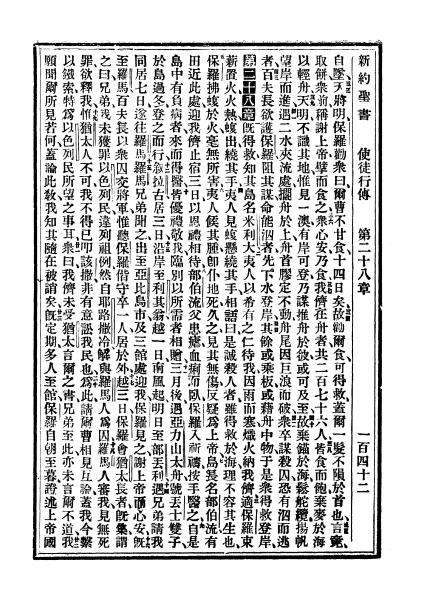 新約聖書 使徒行傳 第二十八章 一百四十二
自墜天將明保羅勸衆曰爾曹不甘食十四日矣故勸爾食可得救蓋爾一髮不隕於首也言竟
取餅衆前稱謝上帝擘而食之衆心安乃食我儕在舟者共二百七十六人皆食而飽棄麥於海
以輕舟天明不識其地惟見一澳有岸可登乃謀推舟於彼或可及至故棄錨於海鬆舵纜揚帆
望岸而進遇二水夾流處擱舟於上舟首膠定不動舟尾因巨浪而破衆卒謀殺囚恐有泅而逃
者百夫長欲護保羅阻其謀命能泅者先下水登岸其餘或乘板或藉舟中物于是衆得救登岸
第二十八章旣得救知其島名米利大夷人以希有之仁待我因雨而寒爇火納我儕適保羅束
薪置火火熱蝮出繞其手夷人見蝮懸繞其手相語曰是誠殺人者雖得救於海理不容其生也
保羅拂蝮於火毫無所害夷人候其腫卽仆地死久之見其無傷反疑爲上帝島長名部伯流有
田近此處迎我儕止宿三日以恩禮相待部伯流父患瘧血痢而臥保羅入祈禱按手醫之自是
島中有負病者來而得醫皆優禮敬我臨別以所需者相贈三月後遇亞力山太舟號丟士雙子
於島過冬登之而行叙拉古居三日沿岸至利其翁越一日南風起明日至部丟利遇兄弟請我
同居七日遂往羅馬羅馬兄弟聞之出至亞比島市及三館處迎我保羅見之謝上帝而心安旣
至羅馬百夫長以衆囚交將軍惟聽保羅偕守卒一人居於外越三日保羅會猶太長者旣集謂
之曰兄弟我未獲罪以色列民違列祖例然自耶路撒冷解與羅馬人爲囚羅馬人審我見無死
罪欲釋我惟猶太人不可我不得已叩該撒非有意訟我民也爲此請爾曹相見互論蓋我今繫
以鐵索特爲以色列民所望之事耳衆曰我儕未受猶太人言爾之書兄弟至此亦未言爾不道我
願聞爾所見若何蓋論此敎我知其隨在被誚矣旣定期多人至館保羅自朝至暮證述上帝國